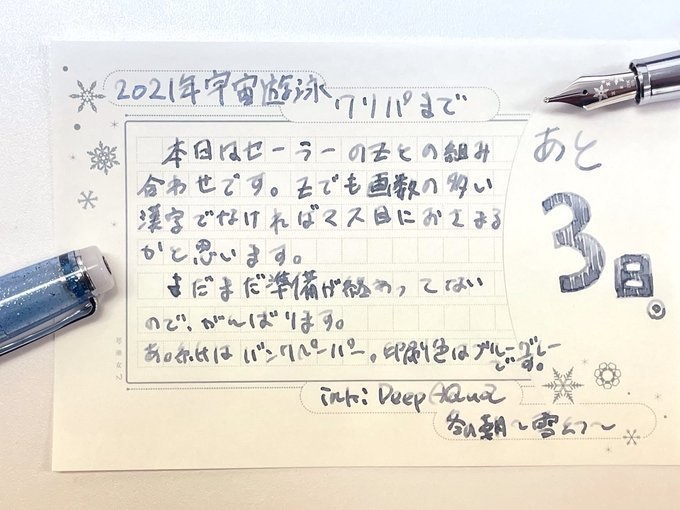 2021年宇宙遊泳
クリパまで
本日はセーラーのZとの組み
合わせです。Zでも画数の多い
漢字でなければマス目におさまる
かと思います。
まだまだ準備が終わってない
ので、がんばります。
あ。紙はバンクペーパー。印刷色はブルーグレー
です。
あと
3日。
ink: Deep AQUA
冬の朝〜雪幻〜